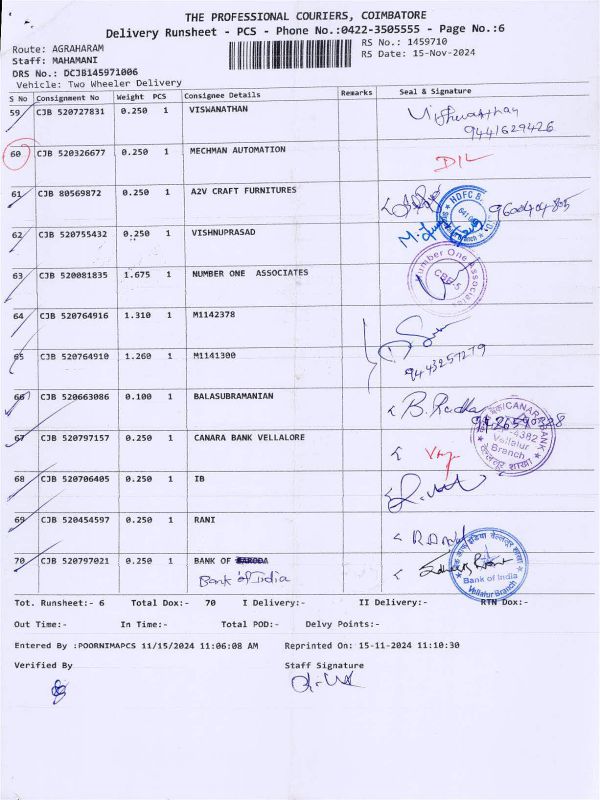 THE PROFESSIONAL COURIERS, COIMBATORE
Delivery Runsheet - PCS - Phone No.:0422-3505555 - Page No.:6
Route: AGRAHARAM RS No.: 1459710
Staff: MAHAMANI RS Date: 15-Nov-2024
DRS No.: DCJB145971006
Vehicle: Two Wheeler Delivery
S No Consignment No Weight PCS Consignee Details Remarks Seal & Signature
59 CJB 520727831 0.250 1 VISWANATHAN
9441629426
60 CJB 520326677 0.250 1 MECHMAN AUTOMATION D/L
61 CJB 80569872 0.250 1 A2V CRAFT FURNITURES
62 CJB 520755432 0.250 1 VISHNUPRASAD
63 CJB 520081835 1.675 1 NUMBER ONE ASSOCIATES Number One Associates CBE-5
64 CJB 520764916 1.310 1 M1142378
65 CJB 520764910 1.260 1 M1141300
9443257279
66 CJB 520663086 0.100 1 BALASUBRAMANIAN B. Radha
67 CJB 520797157 0.250 1 CANARA BANK VELLALORE CANARA BANK Vellalur Branch
68 CJB 520706405 0.250 1 IB
69 CJB 520454597 0.250 1 RANI RANI
70 CJB 520797021 0.250 1 BANK OF BARODA
Bank of India Bank of India Vellalur Branch
Tot. Runsheet:- 6 Total Dox:- 70 I Delivery:- II Delivery:- RTN Dox:-
Out Time:- In Time:- Total POD:- Delvy Points:-
Entered By :POORNIMAPCS 11/15/2024 11:06:08 AM Reprinted On: 15-11-2024 11:10:30
Verified By Staff Signature